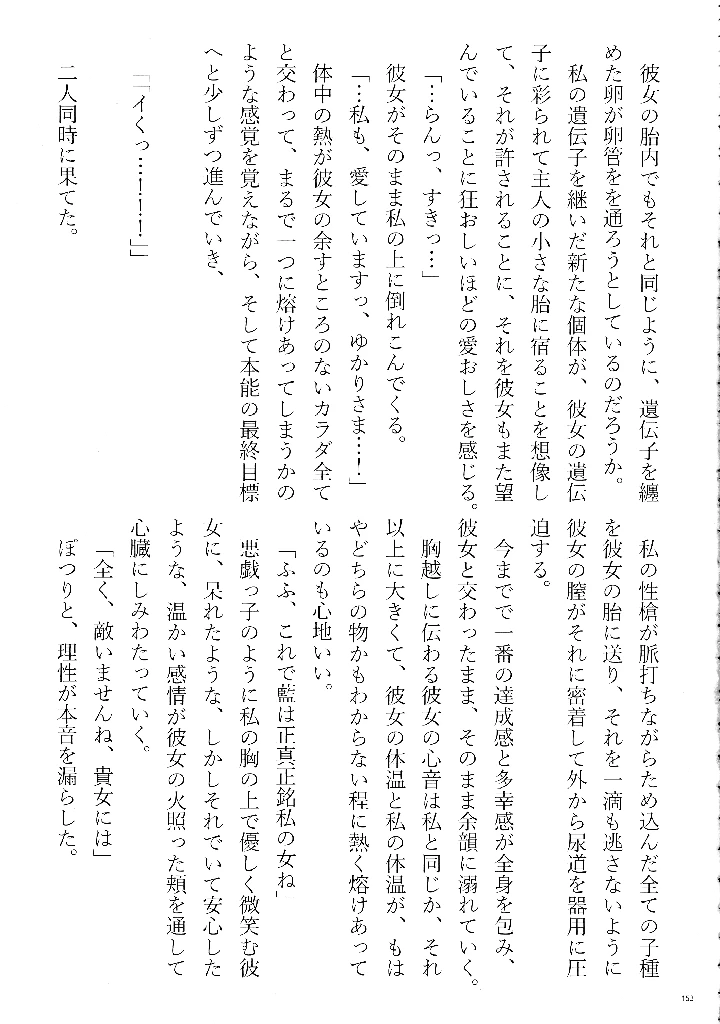 彼女の胎内でもそれと同じように、遺伝子を纏
めた卵が卵管をを通ろうとしているのだろうか。
私の遺伝子を継いだ新たな個体が、彼女の遺伝
子に彩られて主人の小さな胎に宿ることを想像し
て、それが許されることに、それを彼女もまた望
んでいることに狂おしいほどの愛おしさを感じる。
「…らんっ、すきっ…」
彼女がそのまま私の上に倒れこんでくる。
「…私も、愛していますっ、ゆかりさま…！」
体中の熱が彼女の余すところのないカラダ全て
と交わって、まるで一つに熔けあってしまうかの
ような感覚を覚えながら、そして本能の最終目標
へと少しずつ進んでいき、
「「イくっ…！！！」」
二人同時に果てた。
私の性槍が脈打ちながらため込んだ全ての子種
を彼女の胎に送り、それを一滴も逃さないように
彼女の膣がそれに密着して外から尿道を器用に圧
迫する。
今までで一番の達成感と多幸感が全身を包み、
彼女と交わったまま、そのまま余韻に溺れていく。
胸越しに伝わる彼女の心音は私と同じか、それ
以上に大きくて、彼女の体温と私の体温が、もは
やどちらの物かもわからない程に熱く熔けあって
いるのも心地いい。
「ふふ、これで藍は正真正銘私の女ね」
悪戯っ子のように私の胸の上で優しく微笑む彼
女に、呆れたような、しかしそれでいて安心した
ような、温かい感情が彼女の火照った頬を通して
心臓にしみわたっていく。
「全く、敵いませんね、貴女には」
ぽつりと、理性が本音を漏らした。
152